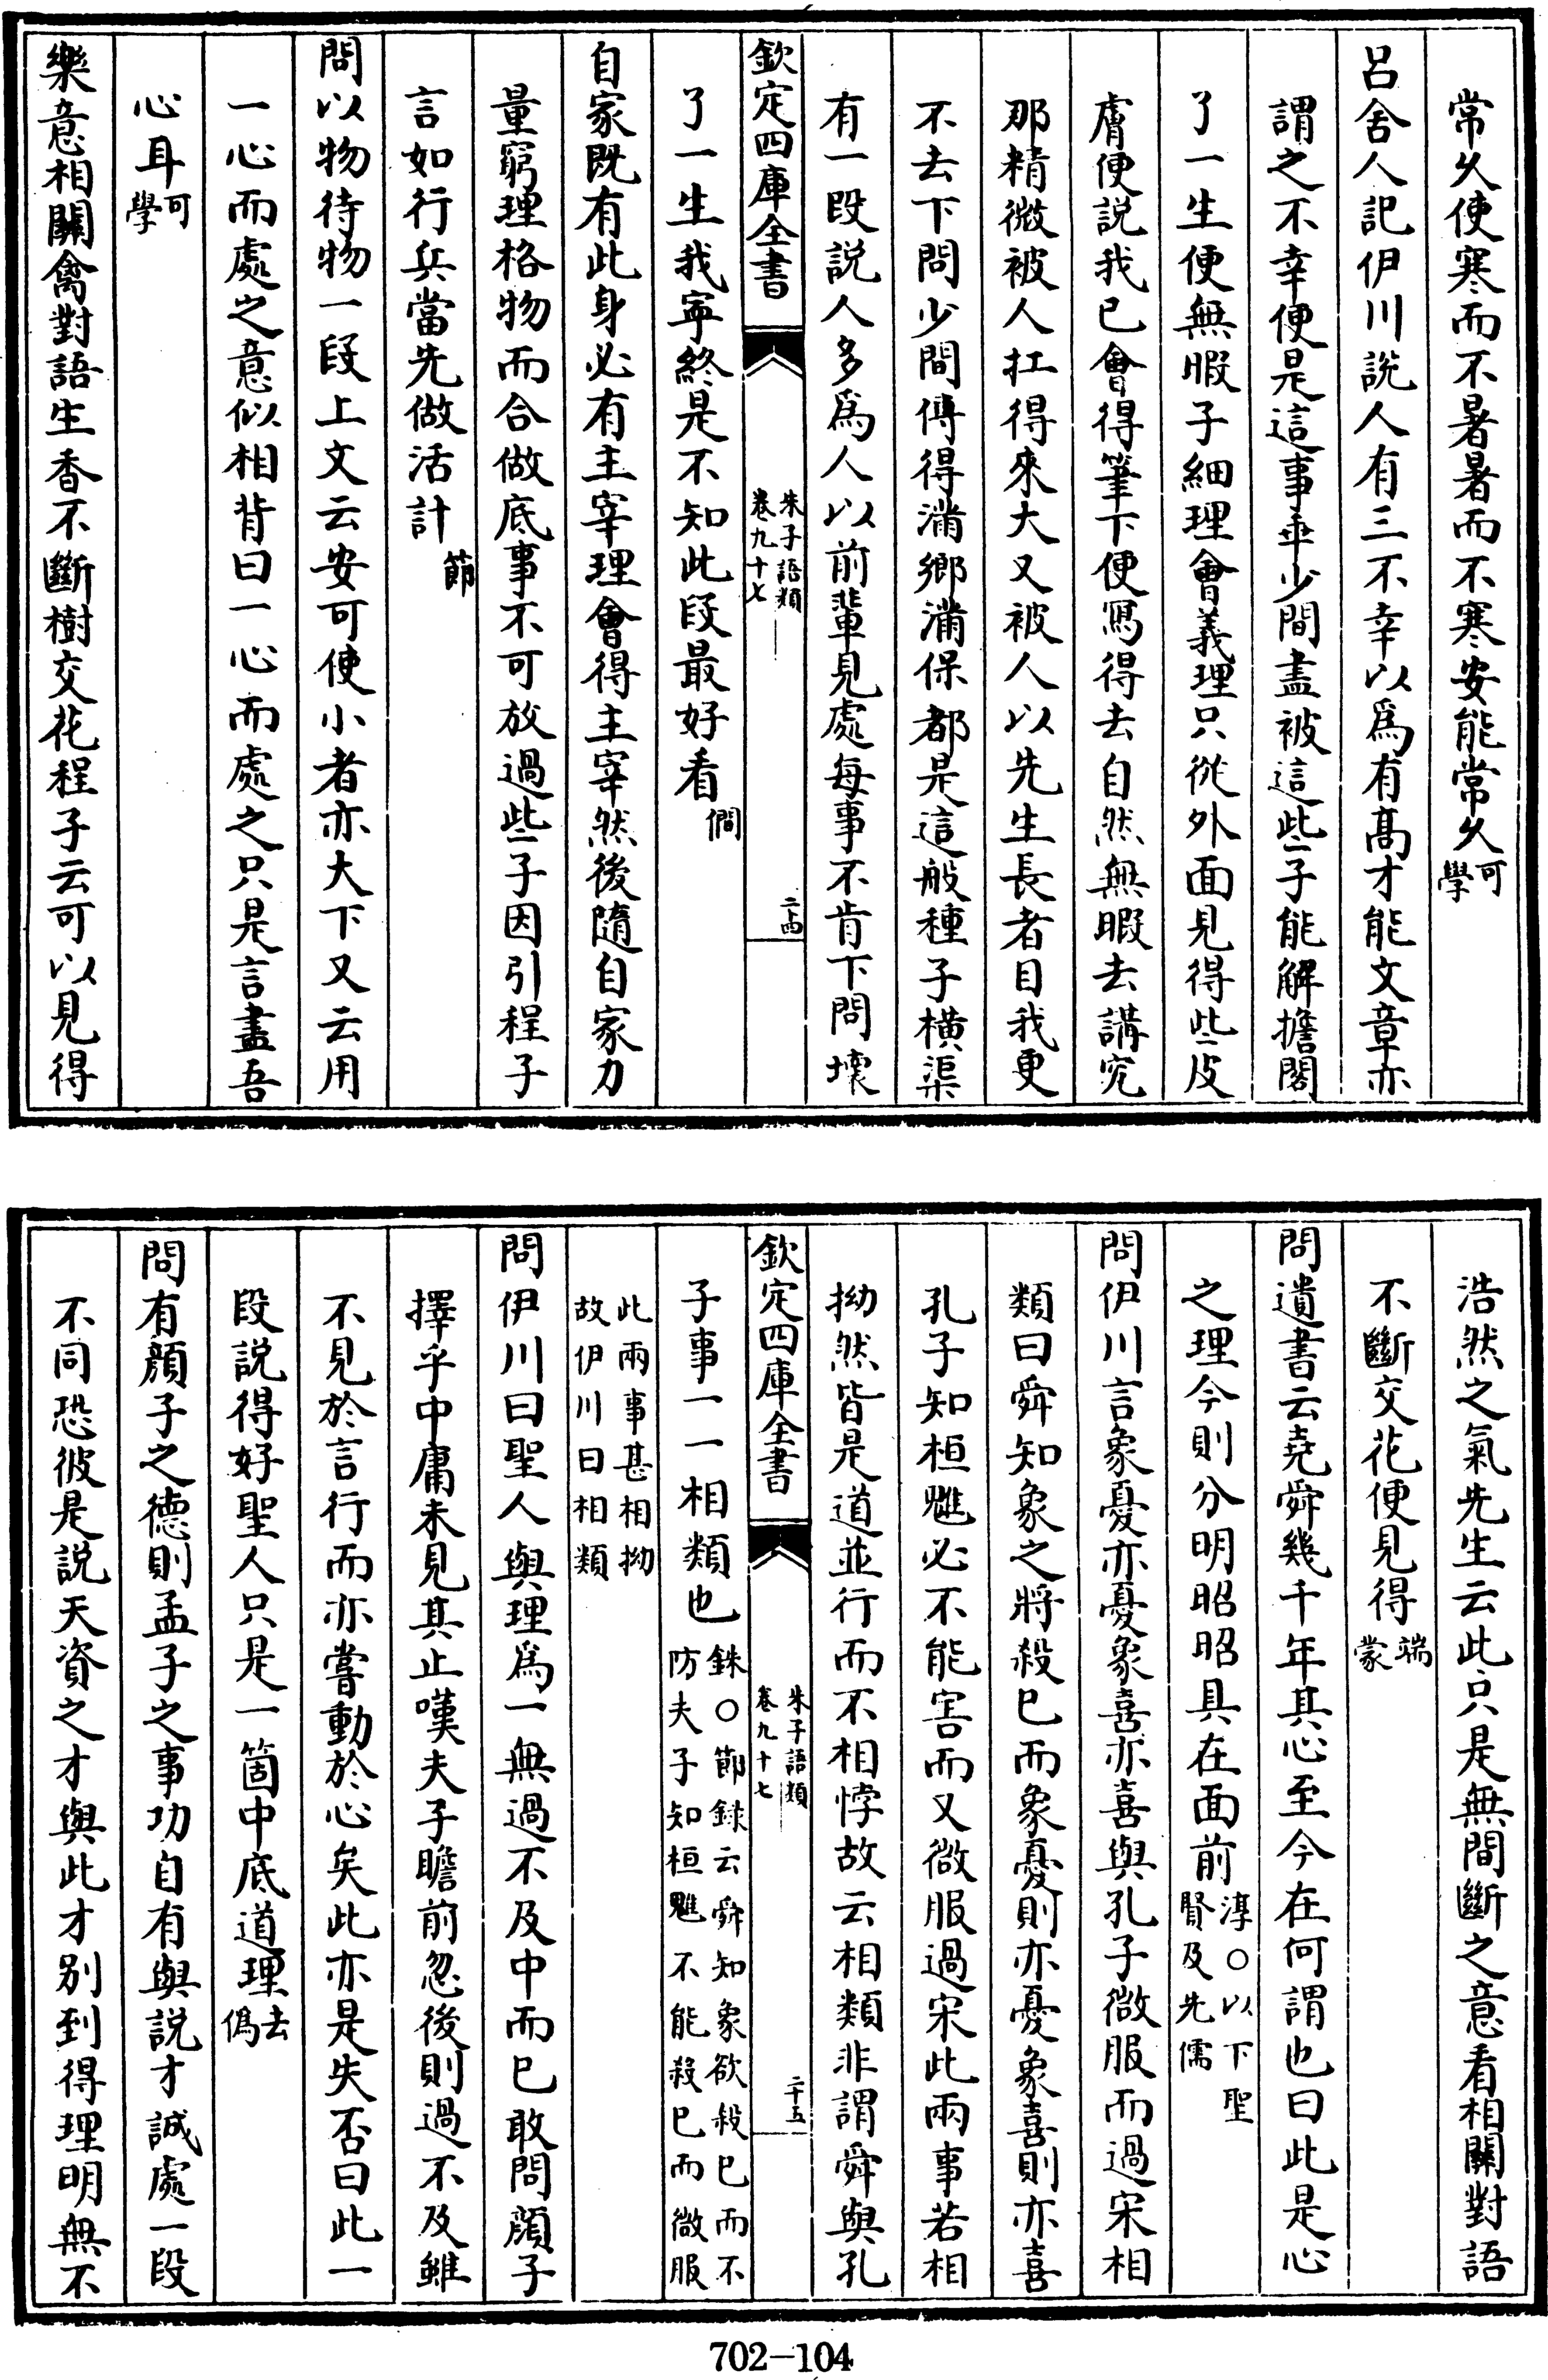 常久使寒而不暑暑而不寒安能常久可學
呂舍人記伊川說人有三不幸以爲有高才能文章亦
謂之不幸便是這事乖少間盡被這些子能解擔閣
了一生便無暇子細理會義理只從外面見得些皮
膚便說我已會得筆下便寫得去自然無暇去講究
那精微被人扛得來大又被人以先生長者目我更
不去下問少間傳得滿鄉滿保都是這般種子橫渠
有一段說人多爲人以前輩見處每事不肯下問壞
欽定四庫全書
朱子語類
卷九十七
二十四
了一生我寧終是不知此段最好看僩
自家既有此身必有主宰理會得主宰然後隨自家力
量窮理格物而合做底事不可放過些子因引程子
言如行兵當先做活計節
問以物待物一段上文云安可使小者亦大下又云用
一心而處之意似相背曰一心而處之只是言盡吾
心耳可學
樂意相關禽對語生香不斷樹交花程子云可以見得
浩然之氣先生云此只是無間斷之意看相關對語
不斷交花便見得端蒙
問遺書云堯舜幾千年其心至今在何謂也曰此是心
之理今則分明昭昭具在面前淳○以下聖賢及先儒
問伊川言象憂亦憂象喜亦喜與孔子微服而過宋相
類曰舜知象之將殺已而象憂則亦憂象喜則亦喜
孔子知桓魋必不能害而又微服過宋此兩事若相
拗然皆是道並行而不相悖故云相類非謂舜與孔
欽定四庫全書
朱子語類
卷九十七
二十五
子事一一相類也銖○節録云舜知象欲殺已而不防夫子知桓魋不能殺已而微服
此兩事甚相拗故伊川曰相類
問伊川曰聖人與理爲一無過不及中而已敢問顔子
擇乎中庸未見其止嘆夫子瞻前忽後則過不及雖
不見於言行而亦嘗動於心矣此亦是失否曰此一
段說得好聖人只是一箇中底道理去僞
問有顔子之德則孟子之事功自有與說才誠處一段
不同恐彼是說天資之才與此才别到得理明無不
702-104